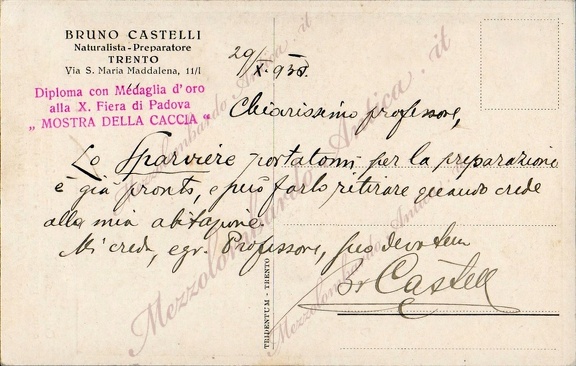 BRUNO CASTELLI
Naturalista-Preparatore
TRENTO
Via S. Maria Maddalena, 11/I
Diploma con Medaglia d'oro
alla X. Fiera di Padova
„ MOSTRA DELLA CACCIA "
29/X.938.
Chiarissimo professore,
Lo Sparviere portatomi per la preparazione
è già pronto, e può farlo ritirare quando crede
alla mia abitazione.
Mi creda, egr. Professore, suo devotissimo
Br Castelli
TRIDENTUM - TRENTO
Mezzolombardo Antica . it
Mezzolombardo Antica . it